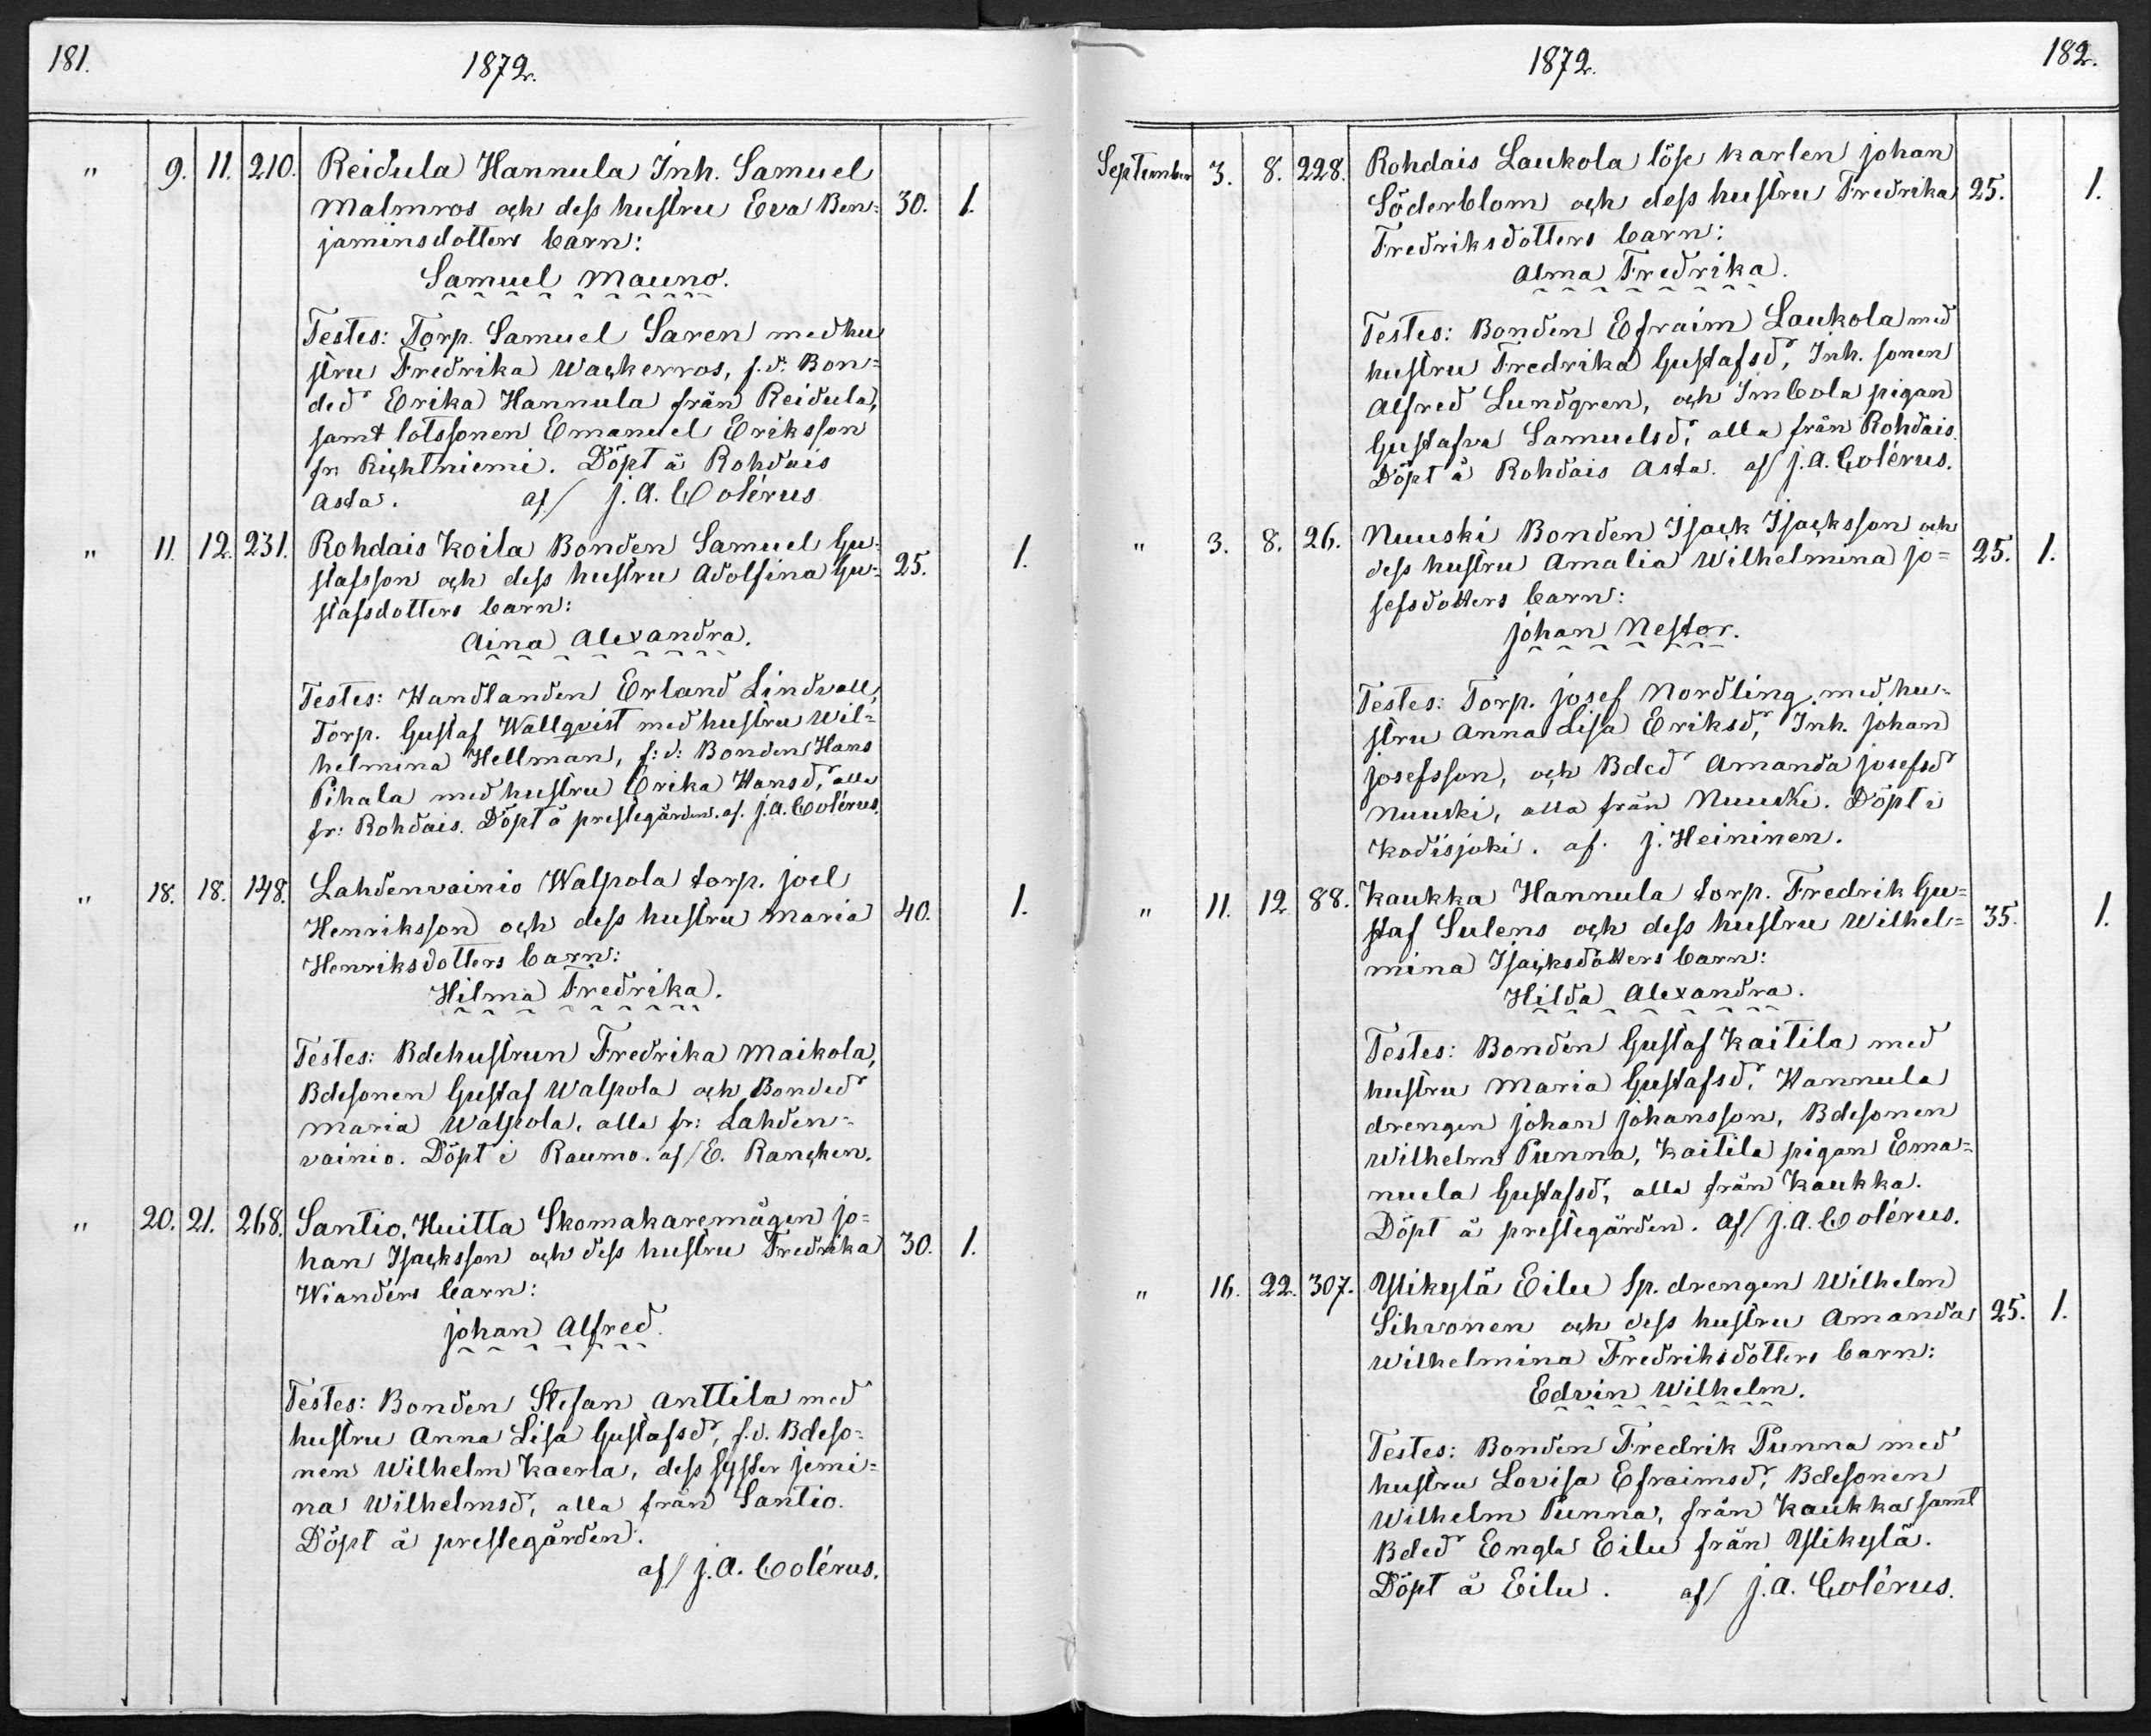 181.
1872.
" 9. 11. 210. Reidula Hannula Inh. Samuel
Malmros och dess hustru Eva Ben= 30. 1.
jaminsdotters barn:
Samuel Mauno.
Testes: Torp. Samuel Saren med hu
stru Fredrika Wackerros, f.d. Bon=
ded Erika Hannula från Reidula,
samt lotssonen Emanuel Eriksson
fr. Richtniemi. Döpt å Rohdais
Asta. af/ J. A. Colérus
" 11. 12. 231. Rohdais Koila Bonden Samuel Gu=
stafsson och dess hustru Adolfina Gu= 25. 1.
stafsdotters barn:
Aina Alexandra.
Testes: Handlanden Erland Lindvall,
Torp. Gustaf Wallqvist med hustru Wil=
helmina Hellman, f:d: Bonden Hans
Pihala med hustru Erika Hansd, alla
fr: Rohdais. Döpt å prestegården. af. J. A. Colérus.
" 18. 18. 148. Lahdenvainio Walpola torp. Joel
Henriksson och dess hustru Maria 40. 1.
Henriksdotters barn:
Hilma Fredrika.
Testes: Bdehustrun Fredrika Maikola,
Bdesonen Gustaf Walpola och Bonded
Maria Walpola, alla fr: Lahden=
vainio. Döpt i Raumo. af/ E. Ranchen.
" 20. 21. 268. Santio, Huitta Skomakaremågen Jo=
han Isacksson och dess hustru Fredrika 30. 1.
Wianders barn:
Johan Alfred.
Testes: Bonden Stefan Anttila med
hustru Anna Lisa Gustafsd, f.d. Bdeso=
nen Wilhelm Kaerla, dess syster Jemi=
na Wilhelmsd, alla från Santio.
Döpt å prestegården.
af/ J. A. Colérus.
1872.
182.
September 3. 8. 228. Rohdais Laukola löse karlen Johan
Söderblom och dess hustru Fredrika 25. 1.
Fredriksdotters barn:
Alma Fredrika.
Testes: Bonden Efraim Laukola med
hustru Fredrika Gustafsd, Inh. sonen
Alfred Lundgren, och Imbola pigan
Gustafva Samuelsd, alla från Rohdais.
Döpt å Rohdais Asta. af/ J. A. Colérus.
" 3. 8. 26. Nuuski Bonden Isack Isacksson och
dess hustru Amalia Wilhelmina Jo= 25. 1.
sefsdotters barn:
Johan Nestor.
Testes: Torp. Josef Nordling med hu=
stru Anna Lisa Eriksd, Inh. Johan
Josefsson, och Bded Amanda Josefsd
Nuuski, alla från Nuuski. Döpt i
Kodisjoki. af. J. Heininen.
" 11. 12. 88. Kaukka Hannula torp. Fredrik Gu=
staf Sulens och dess hustru Wilhel= 35. 1.
mina Isacksdotters barn:
Hilda Alexandra.
Testes: Bonden Gustaf Kaitila med
hustru Maria Gustafsd, Hannula
drengen Johan Johansson, Bdesonen
Wilhelm Punna, Kaitila pigan Ema=
nuela Gustafsd, alla från Kaukka.
Döpt å prestegården. Af/ J. A. Colérus.
" 16. 22. 307. Ylikylä Eilu Sp. drengen Wilhelm
Sihvonen och dess hustru Amanda 25. 1.
Wilhelmina Fredriksdotters barn:
Edvin Wilhelm.
Testes: Bonden Fredrik Punna med
hustru Lovisa Efraimsd, Bdesonen
Wilhelm Punna, från Kaukka samt
Bded Engla Eilu från Ylikylä.
Döpt å Eilu. af/ J. A. Colérus.